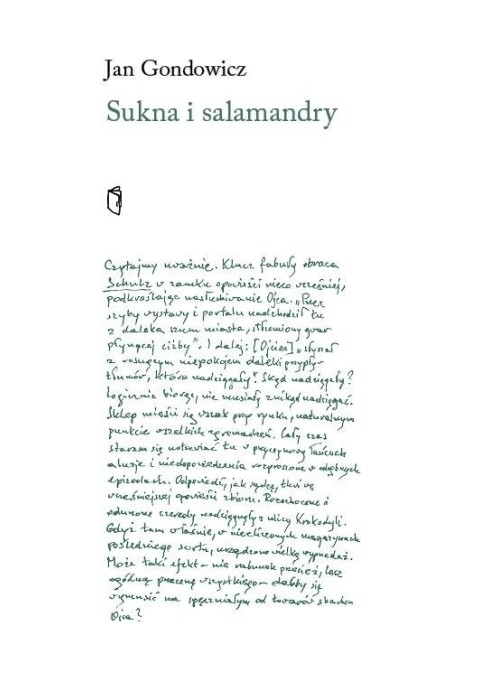 Jan Gondowicz
Sukna i salamandry
Czytajmy uważnie. Klucz fabuły obraca
Schulz w zamku opowieści nieco wcześniej,
podkreślając nasłuchiwanie Ojca. „Przez
szyby wystawy i portalu nadchodził tu
z daleka szum miasta, stłumiony gwar
płynącej ciżby”. I dalej: [Ojciec] „słyszał
z rosnącym niepokojem daleki przypływ
tłumów, które nadciągały”. Skąd nadciągały?
Logicznie biorąc, nie musiały znikąd nadciągać.
Sklep mieści się wszak przy rynku, naturalnym
punkcie wszelkich zgromadzeń. Cały czas
staram się wskazywać tu w łańcuch
aluzje i niedopowiedzenia rozproszone w odrębnych
epizodach. Odpowiedź, jak sądzę, tkwi we
wcześniejszej opowieści zbioru. Rozochocone i
odurzone czeredy nadciągnęły z ulicy Krokodyli.
Gdyż tam właśnie, w niezliczonych magazynach
pośledniego sortu, urządzono wielką wyprzedaż.
Może taki efekt – nie rabunek przecież, lecz
ogólną przecenę wszystkiego – dałoby się
wymusić na spęczniałym od towarów skarbcu
Ojca?